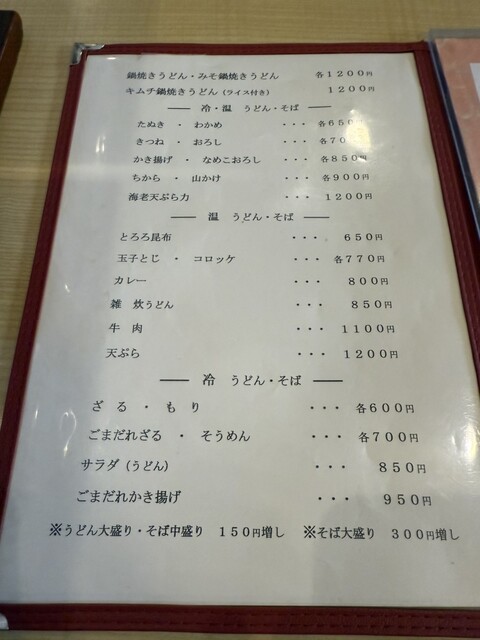 鍋焼きうどん・みそ鍋焼きうどん 各1200円
キムチ鍋焼きうどん(ライス付き) 1200円
冷・温 うどん・そば
たぬき ・ わかめ ・・・ 各650
きつね ・ おろし ・・・ 各70
かき揚げ ・ なめこおろし ・・・ 各850円
ちから ・ 山かけ ・・・ 各900円
海老天ぷら力 ・・・ 1200円
温 うどん・そば
とろろ昆布 ・・・ 650円
玉子とじ ・ コロッケ ・・・ 各770円
カレー ・・・ 800円
雑 炊うどん ・・・ 850円
牛 肉 ・・・ 1100円
天ぷら ・・・ 1200円
冷 うどん・そば
ざ る ・ も り ・・・ 各600円
ごまだれざる ・ そうめん ・・・ 各700円
サラダ(うどん) ・・・ 850円
ごまだれかき揚げ ・・・ 950円
※うどん大盛り・そば中盛り 150円増し ※そば大盛り 300円増し